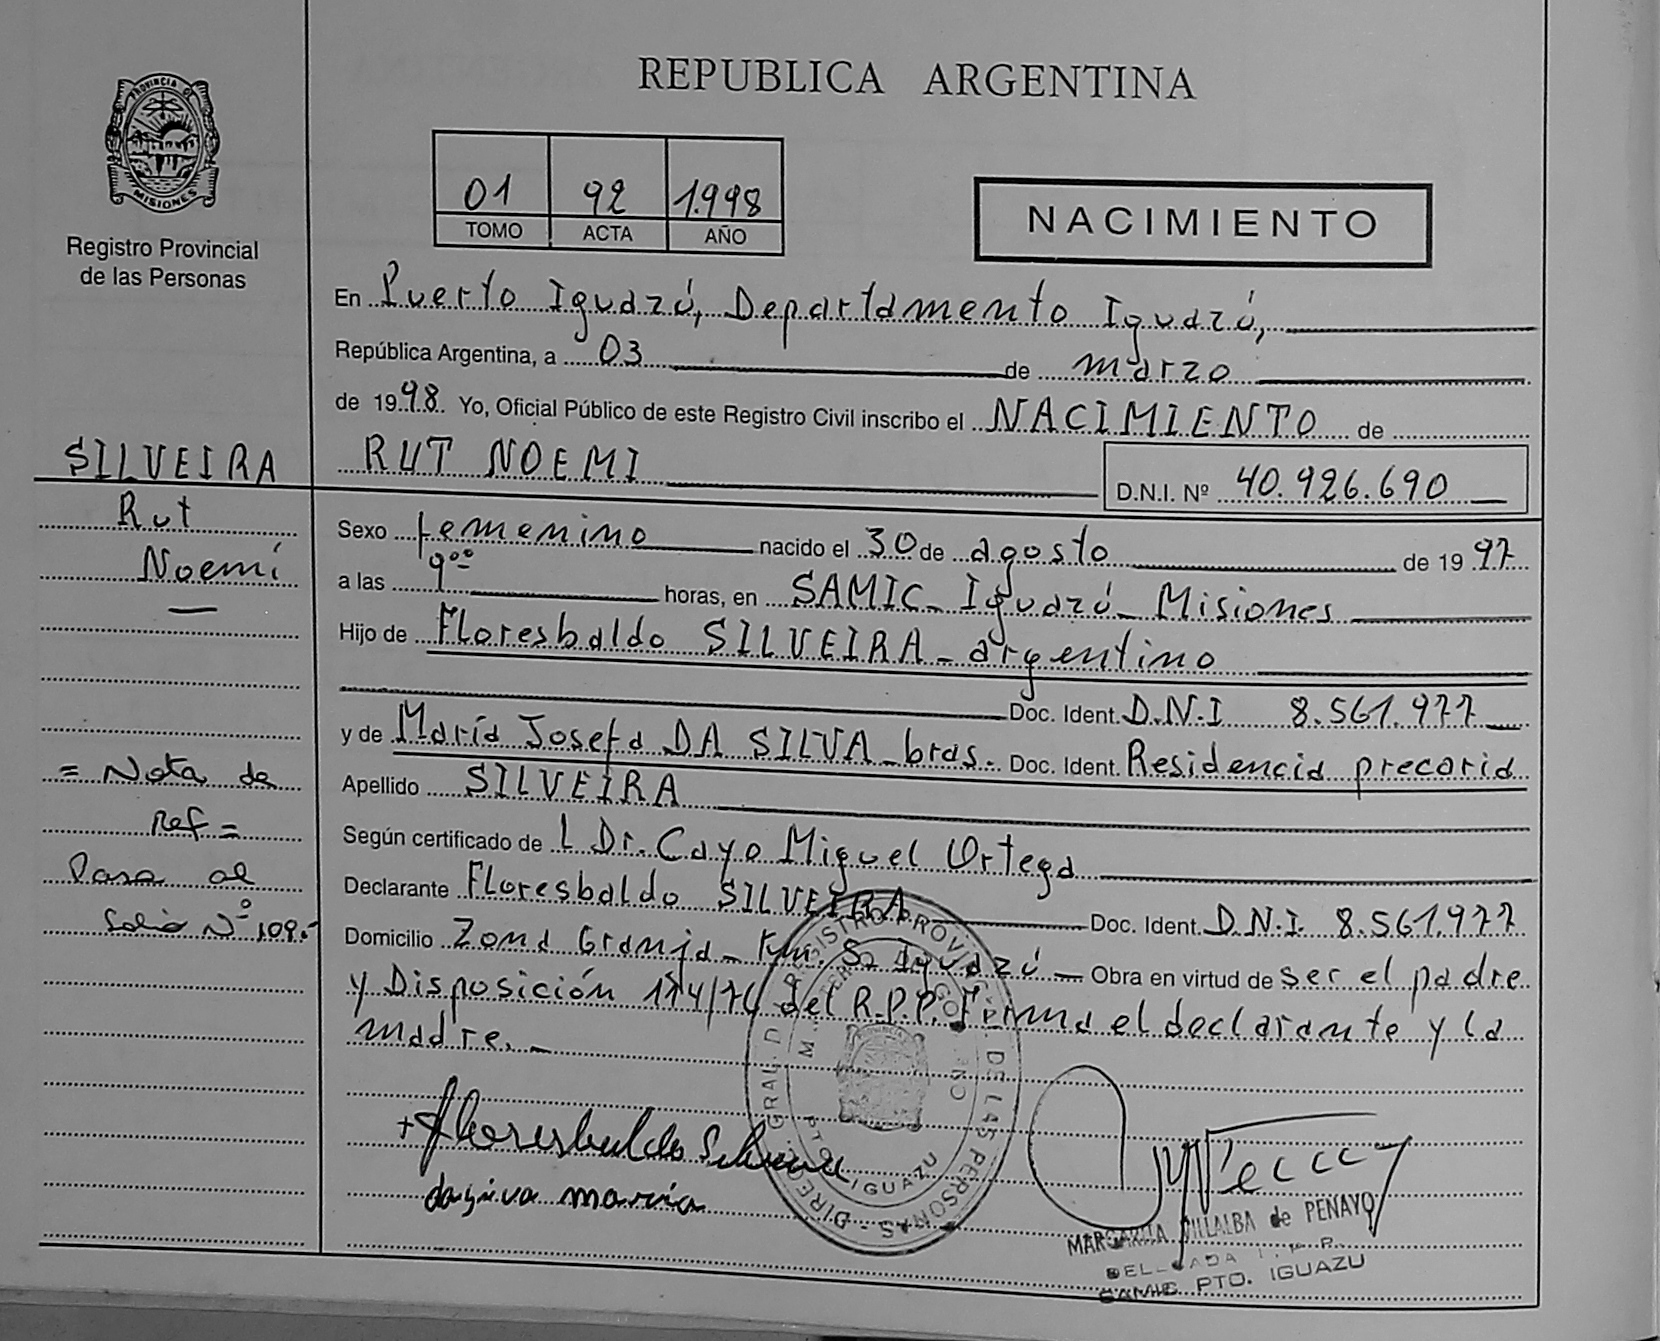 REPUBLICA ARGENTINA
PROVINCIA DE
MISIONES
Registro Provincial
de las Personas
01 92 1.998
TOMO ACTA AÑO
NACIMIENTO
En Puerto Iguazú, Departamento Iguazú,
República Argentina, a 03 de marzo
de 1998. Yo, Oficial Público de este Registro Civil inscribo el NACIMIENTO de
RUT NOEMI
D.N.I. Nº 40.926.690
SILVEIRA
Rut
Noemí
Sexo femenino nacido el 30 de agosto de 1997
a las 9ºº horas, en SAMIC - Iguazú - Misiones
Hijo de Floresbaldo SILVEIRA - argentino
Doc. Ident. D.N.I 8.561.977
y de María Josefa DA SILVA - bras. Doc. Ident. Residencia precaria
Apellido SILVEIRA
Según certificado de L Dr. Cayo Miguel Ortega
Declarante Floresbaldo SILVEIRA Doc. Ident. D.N.I. 8.561.977
Domicilio Zona Granja - Km. 5 - Iguazú - Obra en virtud de ser el padre
y Disposición del R.P.P. Firma el declarante y la
madre. -
= Nota de
Ref =
Pasa al
folio Nº 109.-
+ Floresbaldo Silveira
dasilva maria
DIREC. GRAL. D REGISTRO PROVINC. DE LAS PERSONAS
PTO IGUAZU
MARGARITA VILLALBA de PENAYO
DELEGADA
SAMIC PTO. IGUAZU